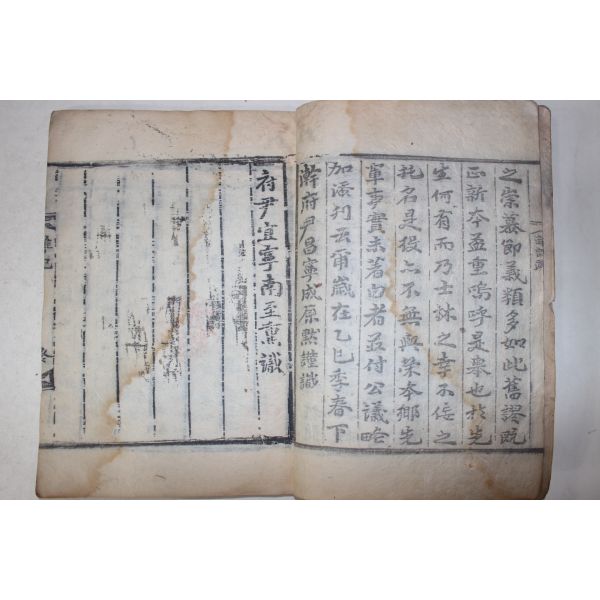 之崇慕節義類多如此舊謬既
正新夲孟重嗚呼是擧也於先
生何有而乃士林之幸不佞之
托名是役亦不無與榮本鄕先
軍事實未著白者並付公議略
加添刊云甭歲在乙巳季春下
澣府尹昌寧成原黙謹識
府尹宜寧南至薰識